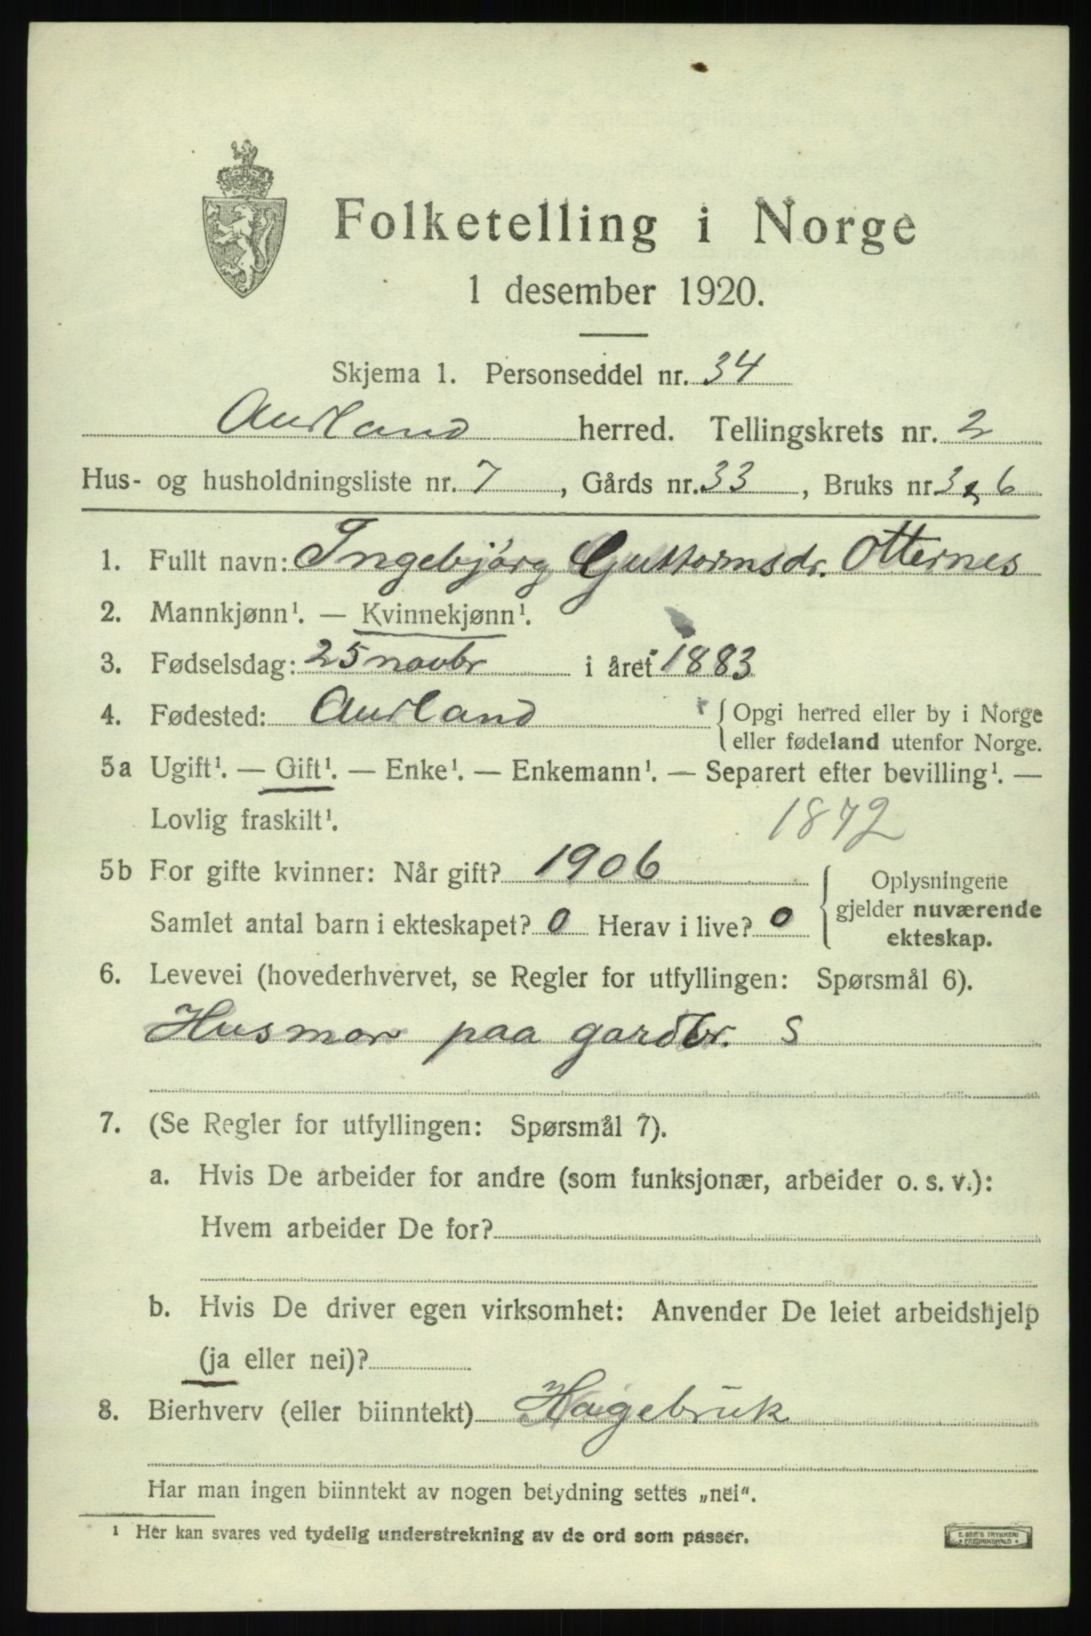 Folketelling i Norge
1 desember 1920.
Skjema 1. Personseddel nr. 34
Aurland herred. Tellingskrets nr. 2
Hus- og husholdningsliste nr. 7, Gårds nr. 33, Bruks nr. 3 & 6
1. Fullt navn: Ingebjørg Guttormsdr. Otternes
2. Mannkjønn¹. — Kvinnekjønn¹.
3. Fødselsdag: 25 novbr i året 1883
4. Fødested: Aurland { Opgi herred eller by i Norge
eller fødeland utenfor Norge.
5a Ugift¹. — Gift¹. — Enke¹. — Enkemann¹. — Separert efter bevilling¹. —
Lovlig fraskilt¹. 1872
5b For gifte kvinner: Når gift? 1906
Samlet antal barn i ekteskapet? 0 Herav i live? 0
{ Oplysningene
gjelder nuværende
ekteskap.
6. Levevei (hovederhvervet, se Regler for utfyllingen: Spørsmål 6).
Husmor paa gardbr. S
7. (Se Regler for utfyllingen: Spørsmål 7).
a. Hvis De arbeider for andre (som funksjonær, arbeider o. s. v.):
Hvem arbeider De for?
b. Hvis De driver egen virksomhet: Anvender De leiet arbeidshjelp
(ja eller nei)?
8. Bierhverv (eller biinntekt) Hagebruk
Har man ingen biinntekt av nogen betydning settes „nei".
¹ Her kan svares ved tydelig understrekning av de ord som passer.